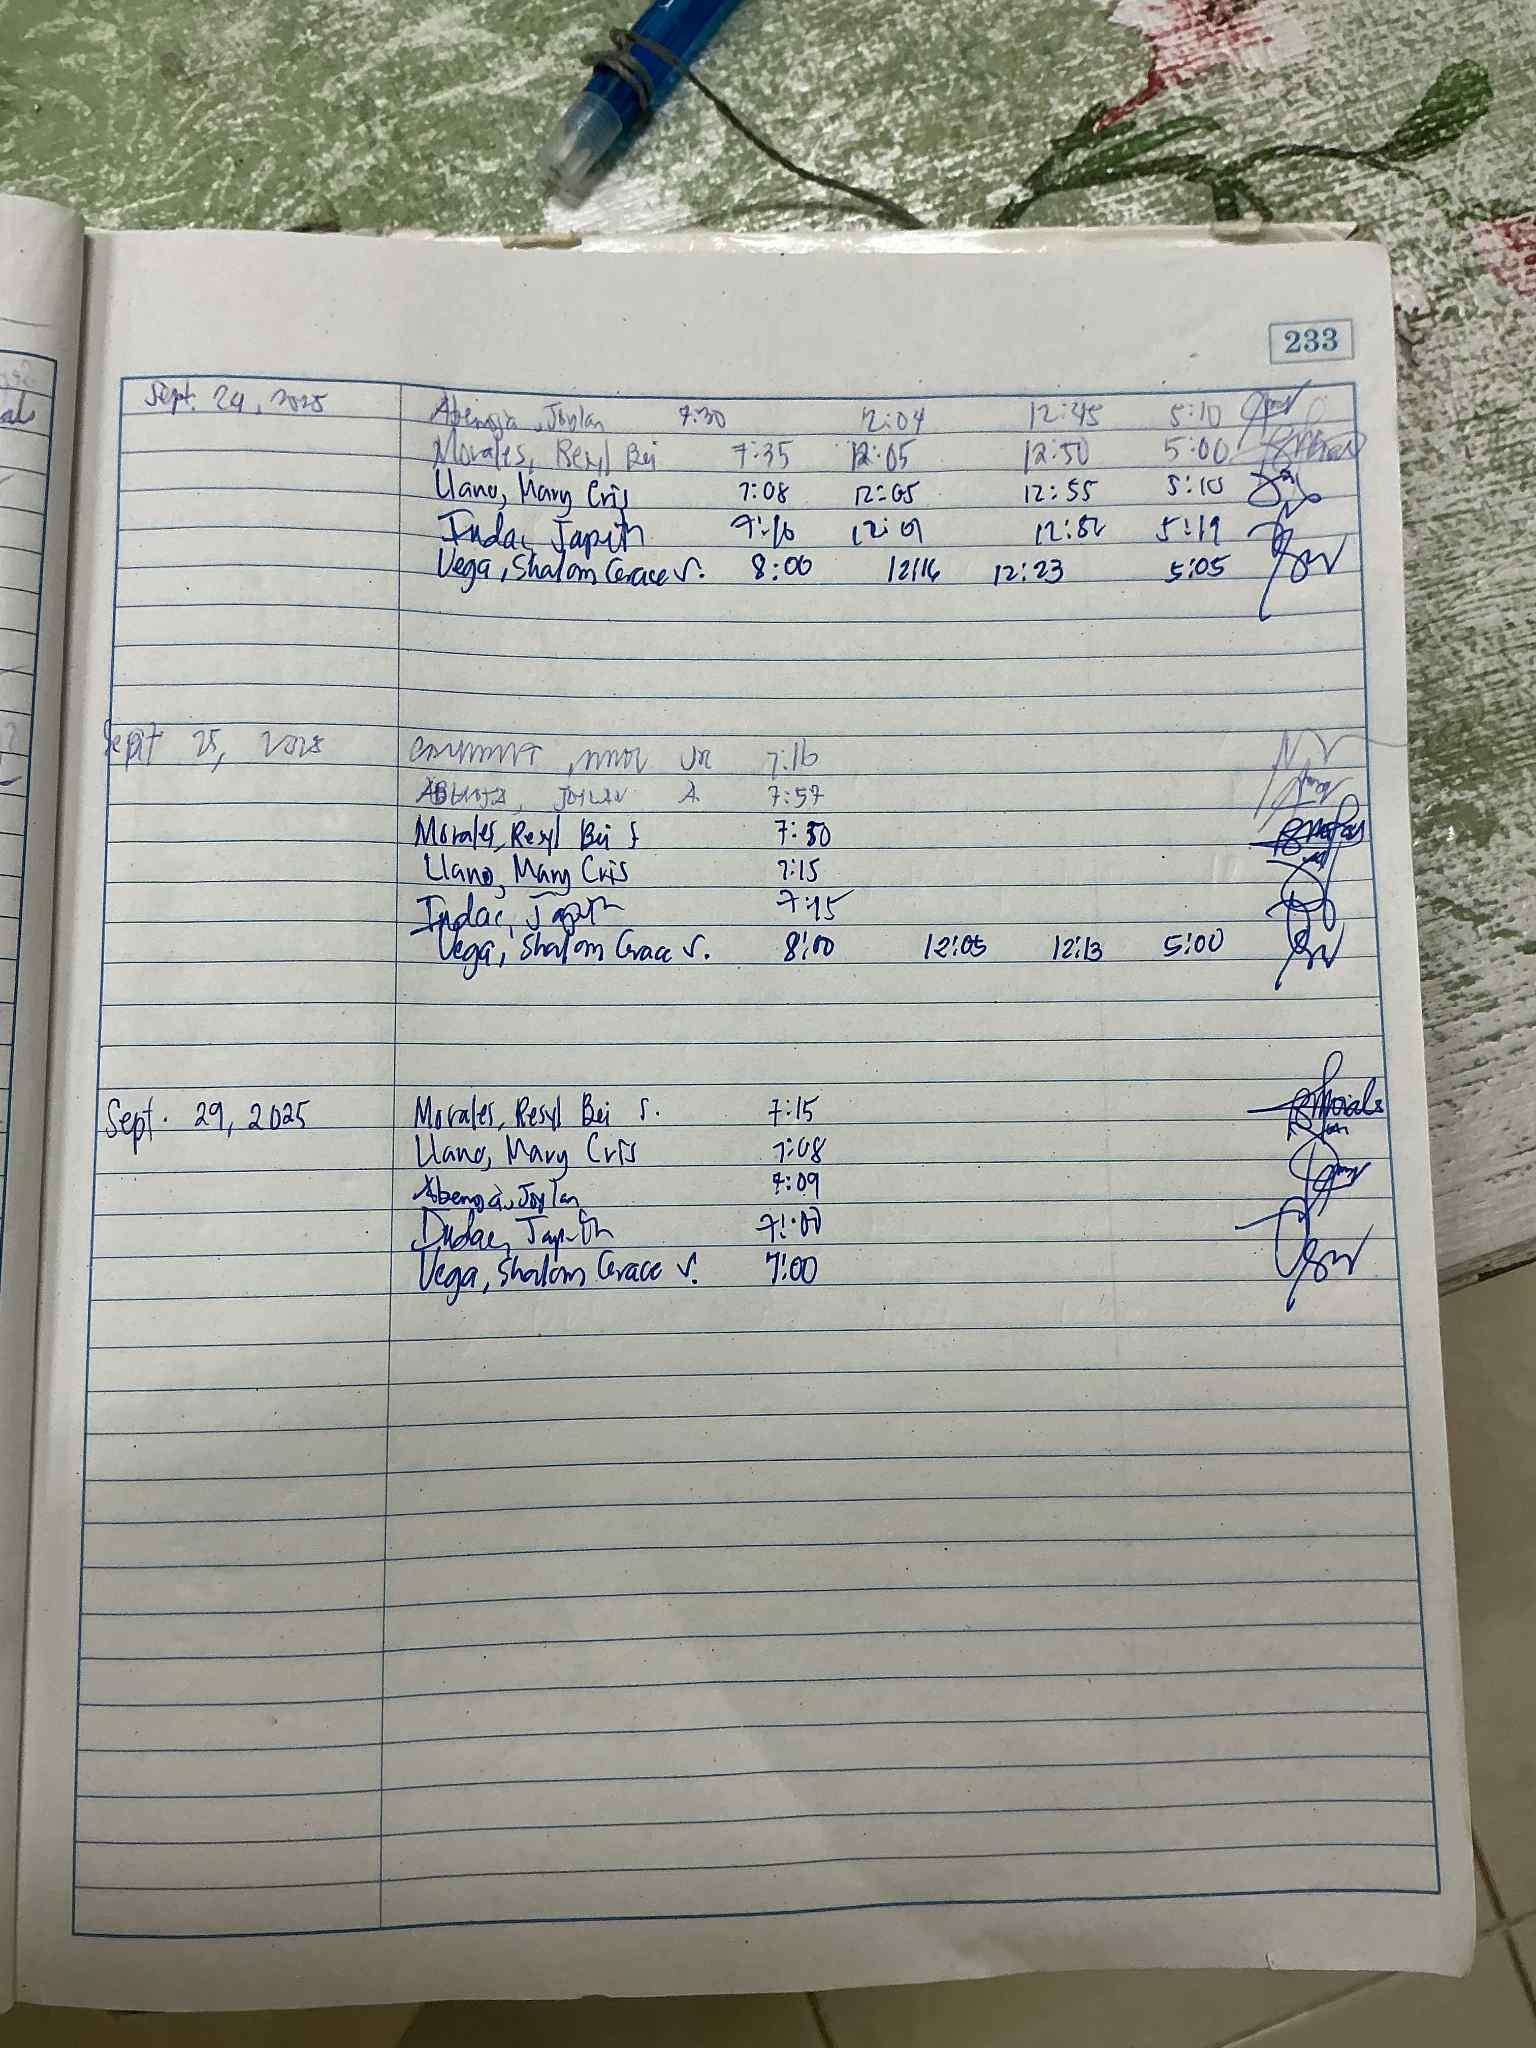 233
Sept. 24, 2025 Abenoja, Joylan 7:30 12:04 12:45 5:10
Morales, Resyl Bei 7:35 12:05 12:50 5:00
Llano, Mary Cris 7:08 12:05 12:55 5:10
Indac, Japith 7:16 12:01 12:52 5:19
Vega, Shalom Grace V. 8:00 12:16 12:23 5:05
Sept 25, 2025 JR 7:16
Joylan A. 7:57
Morales, Resyl Bei S 7:30
Llano, Mary Cris 7:15
Indac, Japith 7:15
Vega, Shalom Grace V. 8:00 12:05 12:13 5:00
Sept. 29, 2025 Morales, Resyl Bei S. 7:15
Llano, Mary Cris 7:08
Abenoja, Joylan 7:09
Japith 7:00
Vega, Shalom Grace V. 7:00